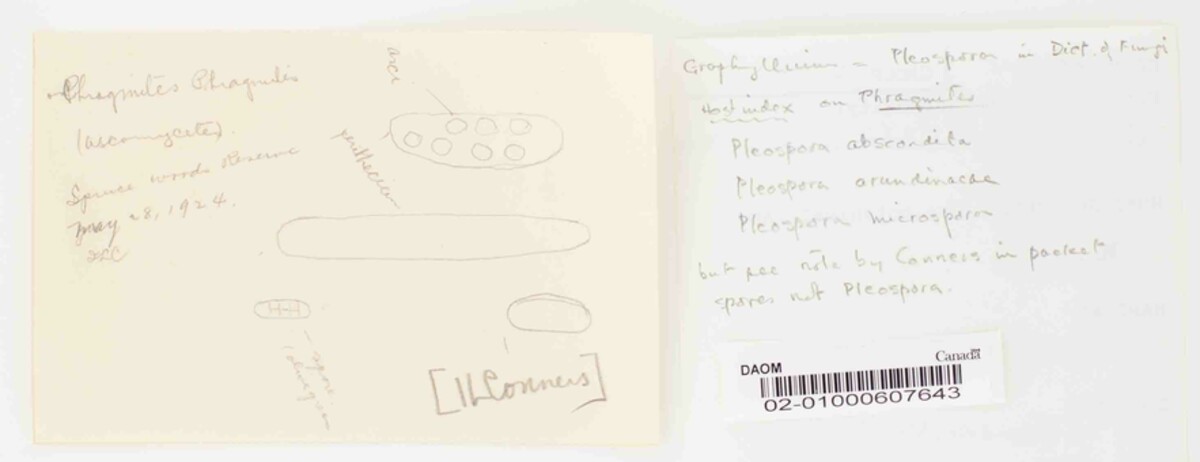 Phragmites Phragmitis
(ascomycetes).
Spruce woods Reserve
May 28, 1924.
ILC
asci
perithecium
spore.
[ILConners]
Graphyllium = Pleospora in Dict. of Fungi
Host index on Phragmites
Pleospora abscondita
Pleospora arundinacae
Pleospora microspora
but see note by Conners in packet
spores not Pleospora.
DAOM
Canada
02-01000607643